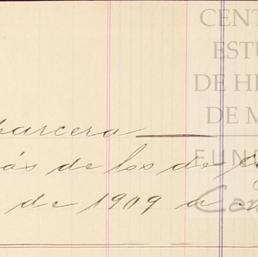 CENT
ESTU
DE H
DE M
FUN
Ca
barcera
ás de los de
de 1909 a